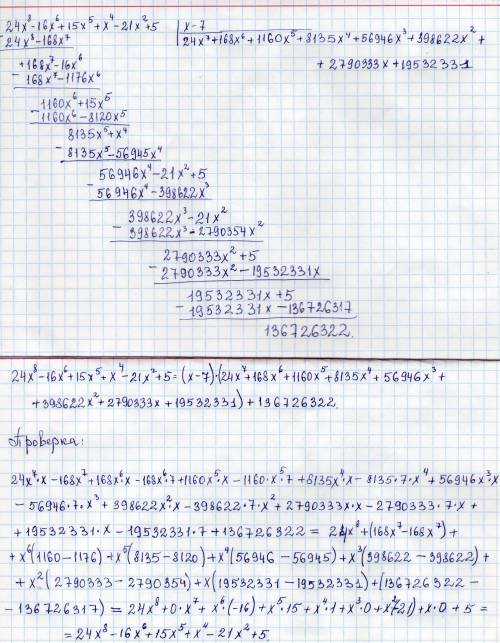 24x⁸-16x⁶+15x⁵+x⁴-21x²+5 | x-7
24x⁸-168x⁷ 24x⁷+168x⁶+1160x⁵+8135x⁴+56946x³+398622x²+
+168x⁷-16x⁶ +2790333x+19532331
- 168x⁷-1176x⁶
1160x⁶+15x⁵
- 1160x⁶-8120x⁵
8135x⁵+x⁴
- 8135x⁵-56945x⁴
56946x⁴-21x²+5
- 56946x⁴-398622x³
398622x³-21x²
- 398622x³-2790354x²
2790333x²+5
- 2790333x²-19532331x
19532331x+5
- 19532331x-136726317
136726322.
24x⁸-16x⁶+15x⁵+x⁴-21x²+5=(x-7)·(24x⁷+168x⁶+1160x⁵+8135x⁴+56946x³+
+398622x²+2790333x+19532331)+136726322.
Проверка:
24x⁷·x-168x⁷+168x⁶·x-168x⁶·7+1160x⁵·x-1160·x⁵·7+8135x⁴·x-8135·7·x⁴+56946x³·x
-56946·7·x³+398622x²·x-398622·7·x²+2790333x·x-2790333·7·x+
+19532331·x-19532331·7+136726322=24x⁸+(168x⁷-168x⁷)+
+x⁶(1160-1176)+x⁵(8135-8120)+x⁴(56946-56945)+x³(398622-398622)+
+x²(2790333-2790354)+x(19532331-19532331)+(136726322-
-136726317)=24x⁸+0·x⁷+x⁶·(-16)+x⁵·15+x⁴·1+x³·0+x²(-21)+x·0+5=
=24x⁸-16x⁶+15x⁵+x⁴-21x²+5.